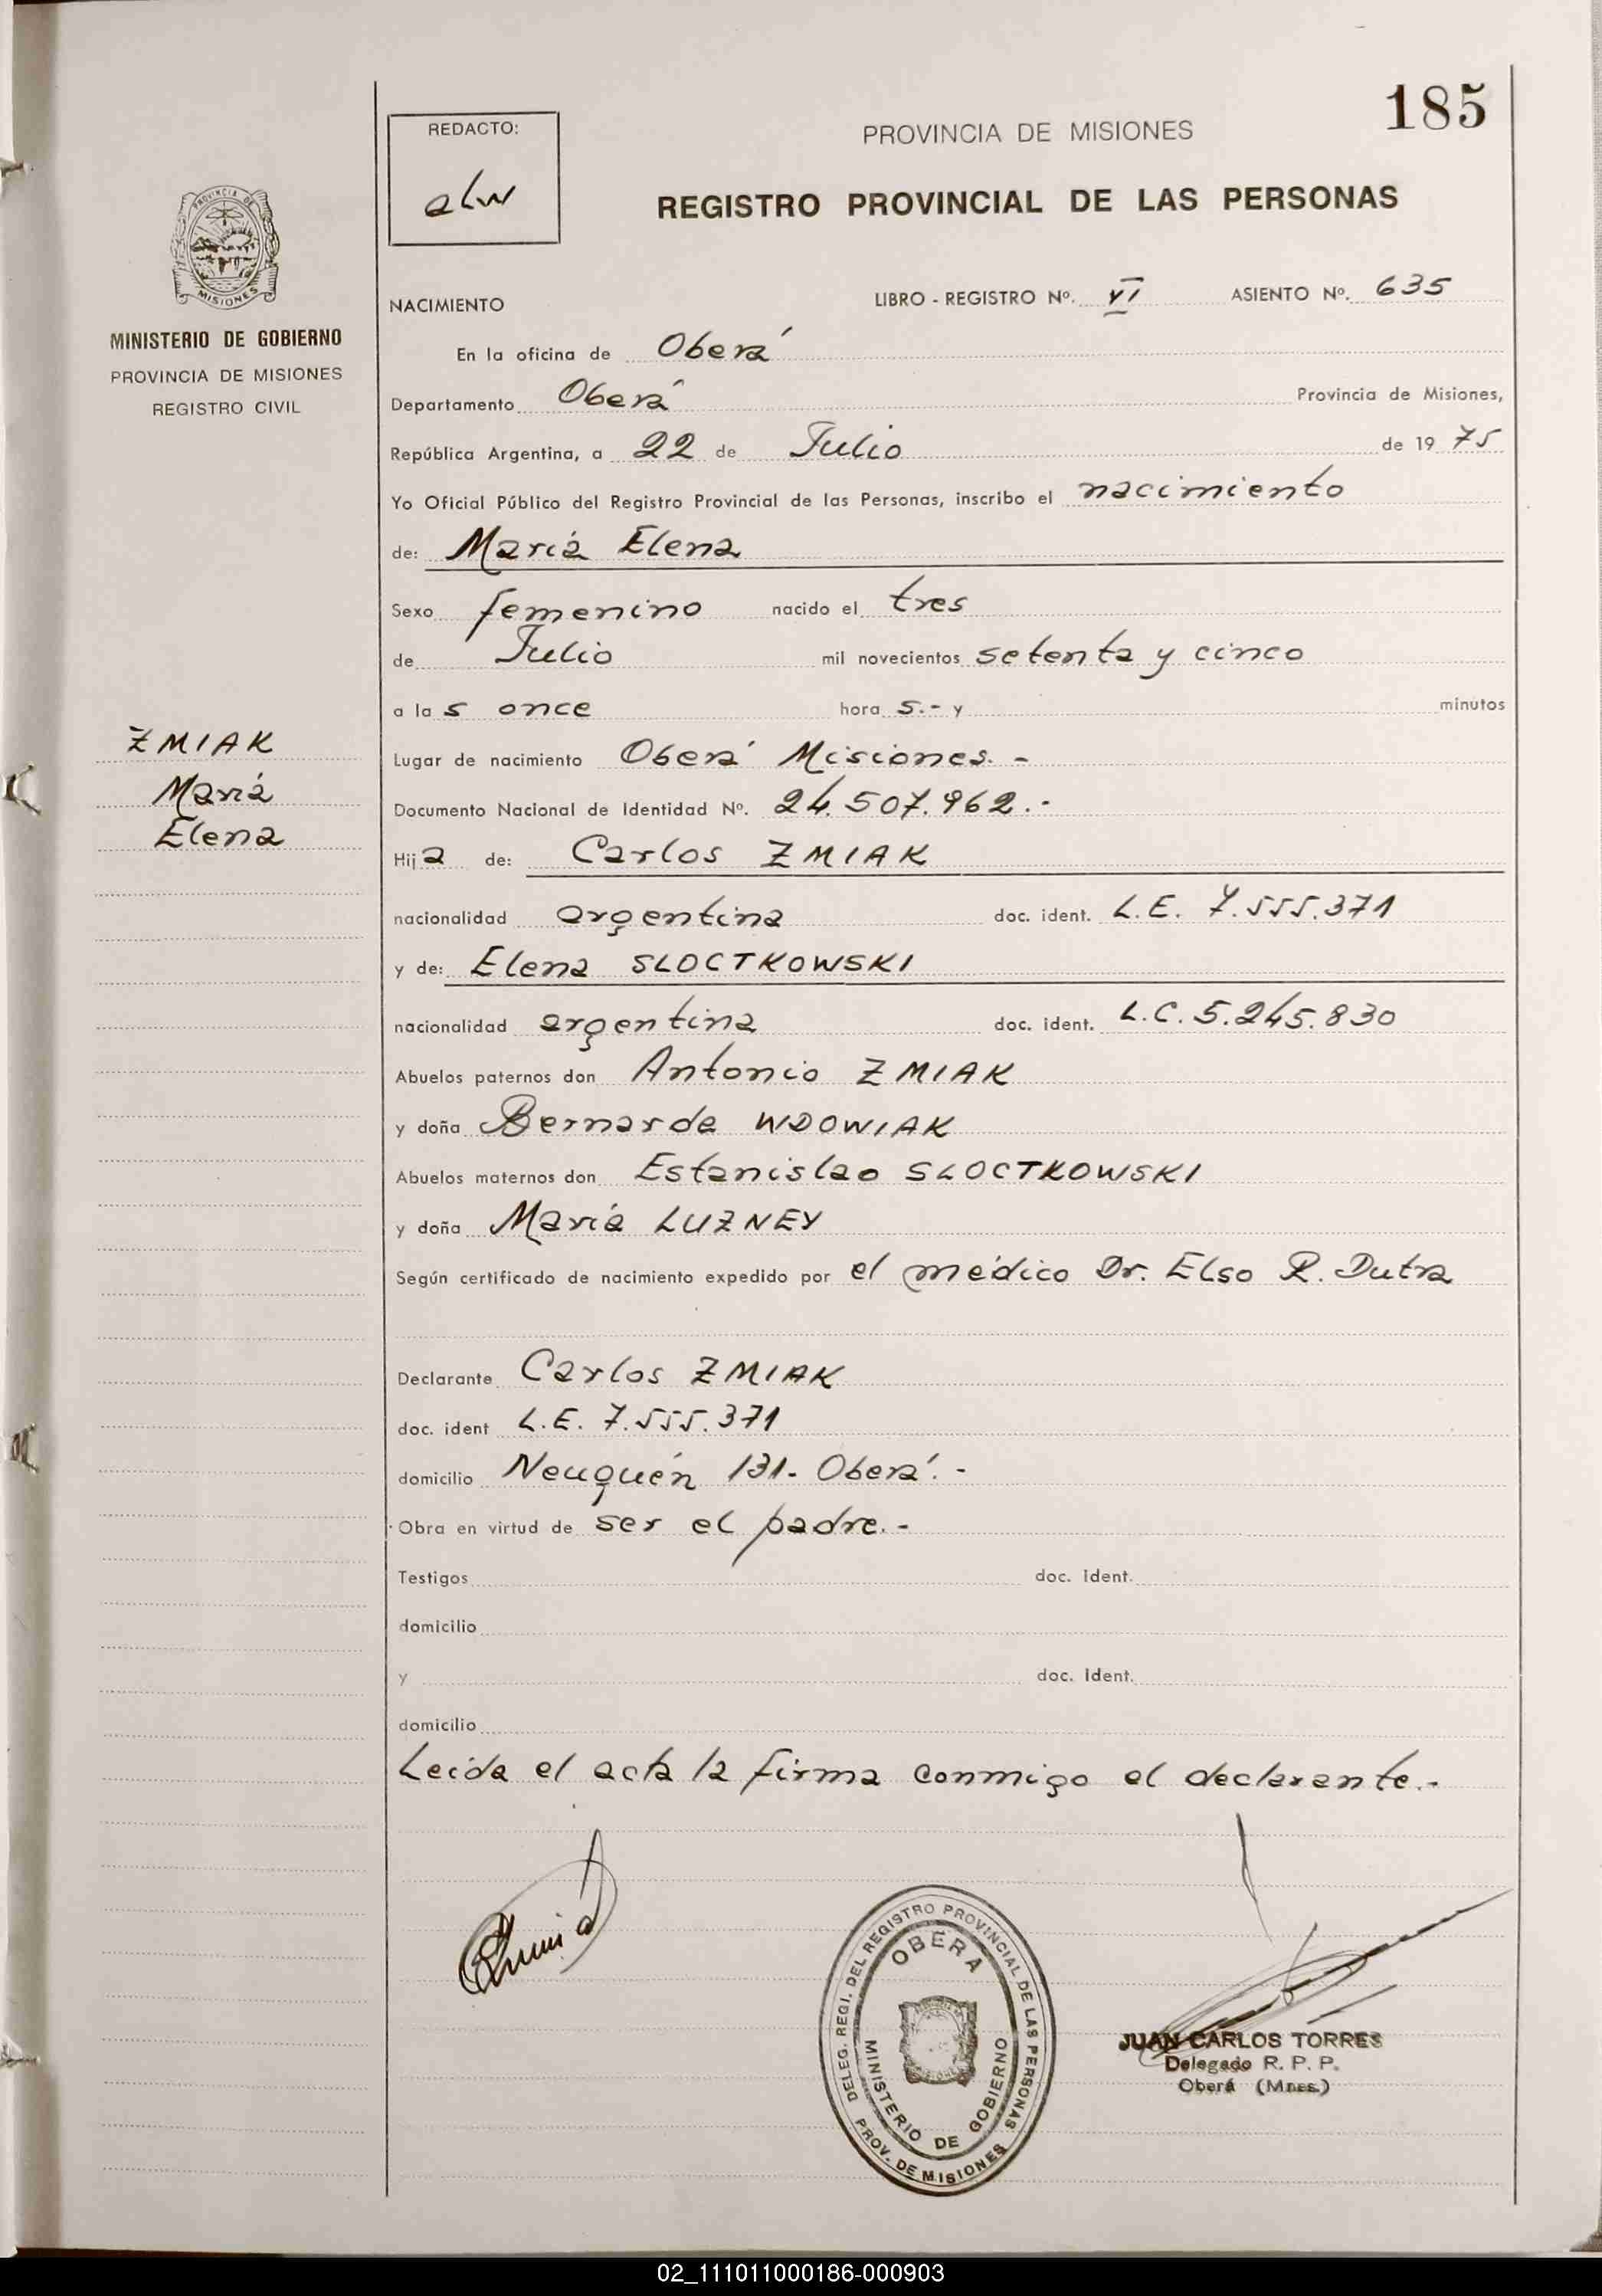 185
REDACTO:
PROVINCIA DE MISIONES
REGISTRO PROVINCIAL DE LAS PERSONAS
PROVINCIA DE
MISIONES
MINISTERIO DE GOBIERNO
PROVINCIA DE MISIONES
REGISTRO CIVIL
NACIMIENTO LIBRO - REGISTRO Nº. VI ASIENTO Nº. 635
En la oficina de Oberá
Departamento Oberá Provincia de Misiones,
República Argentina, a 22 de Julio de 19 75
Yo Oficial Público del Registro Provincial de las Personas, inscribo el nacimiento
de: María Elena
Sexo femenino nacido el tres
de Julio mil novecientos setenta y cinco
a la s once hora s.- y minutos
ZMIAK
María
Elena
Lugar de nacimiento Oberá Misiones. -
Documento Nacional de Identidad Nº. 24.507.962.-
Hija de: Carlos ZMIAK
nacionalidad argentina doc. ident. L.E. 7.555.371
y de: Elena SLOCTKOWSKI
nacionalidad argentina doc. ident. L.C. 5.245.830
Abuelos paternos don Antonio ZMIAK
y doña Bernarda WDOWIAK
Abuelos maternos don Estanislao SLOCTKOWSKI
y doña María LUZNEY
Según certificado de nacimiento expedido por el médico Dr. Elso R. Dutra
Declarante Carlos ZMIAK
doc. ident L.E. 7.555.371
domicilio Neuquén 131- Oberá.-
Obra en virtud de ser el padre.-
Testigos doc. ident.
domicilio
y doc. ident.
domicilio
Leída el acta la firma conmigo el declarante.-
DELEG. REGI. DEL REGISTRO PROVINCIAL DE LAS PERSONAS
OBERA
MINISTERIO DE GOBIERNO
PROV. DE MISIONES
JUAN CARLOS TORRES
Delegado R. P. P.
Oberá (Mnes.)
02_111011000186-000903